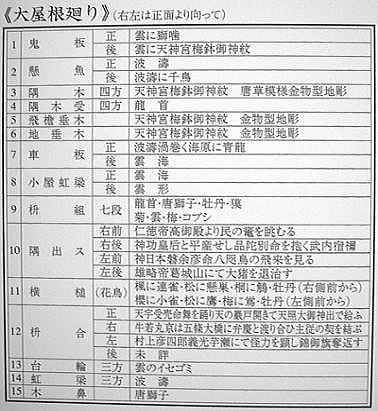 《大屋根廻り》(右左は正面より向って)
1 鬼板 正 雲に獅噛
後 雲に天神宮梅鉢御神紋
2 懸魚 正 波濤
後 波濤に千鳥
3 隅木 四方 天神宮梅鉢御神紋 唐草模様金物型地彫
4 隅木受 四方 龍首
5 飛檐垂木 天神宮梅鉢御神紋 金物型地彫
6 地垂木 天神宮梅鉢御神紋 金物型地彫
7 車板 正 波濤渦巻く海原に青龍
後 雲海
8 小屋虹梁 正 雲海
後 雲形
9 枡組 七段 龍首・唐獅子・牡丹・獏
菊・雲・梅・コブシ
10 隅出ス 右前 仁徳帝高御殿より民の竃を眺むる
右後 神功皇后と平産せし品陀別命を抱く武内宿禰
左前 神日本磐余彦命八咫烏の飛来を見る
左後 雄略帝葛城山にて大猪を退治す
11 横槌 (花鳥) 楓に連雀・松に懸巣・桐に鷭・牡丹(右側前から)
櫻に小雀・松に鷹・梅に鴬・牡丹(左側前から)
12 枡合 正 天宇受売命舞を踊り天の巌戸開きて天照大御神出で給ふ
右 牛若丸京は五條大橋に弁慶と渡り合ひ主従の契を結ぶ
左 村上彦四郎義光芋瀬にて怪力を顕し錦御旗奪返す
後 未詳
13 台輪 三方 雲のイセゴミ
14 虹梁 三方 波濤
15 木鼻 唐獅子